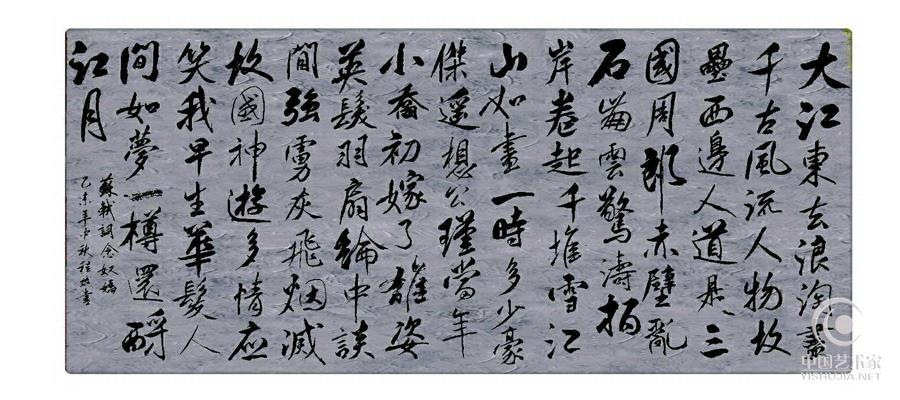 大江東去浪淘盡
千古風流人物故
壘西邊人道是三
國周郎赤壁亂
石崩雲驚濤拍
岸卷起千堆雪江
山如畫一時多少豪
傑遥想公瑾當年
小喬初嫁了雄姿
英髮羽扇綸中談
間強虜灰飛烟滅
故國神遊多情應
笑我早生華髮人
間如夢一樽還酹
江月
蘇軾詞念奴嬌
乙未年中秋程書
中国艺术家
YISHUJIA.NET